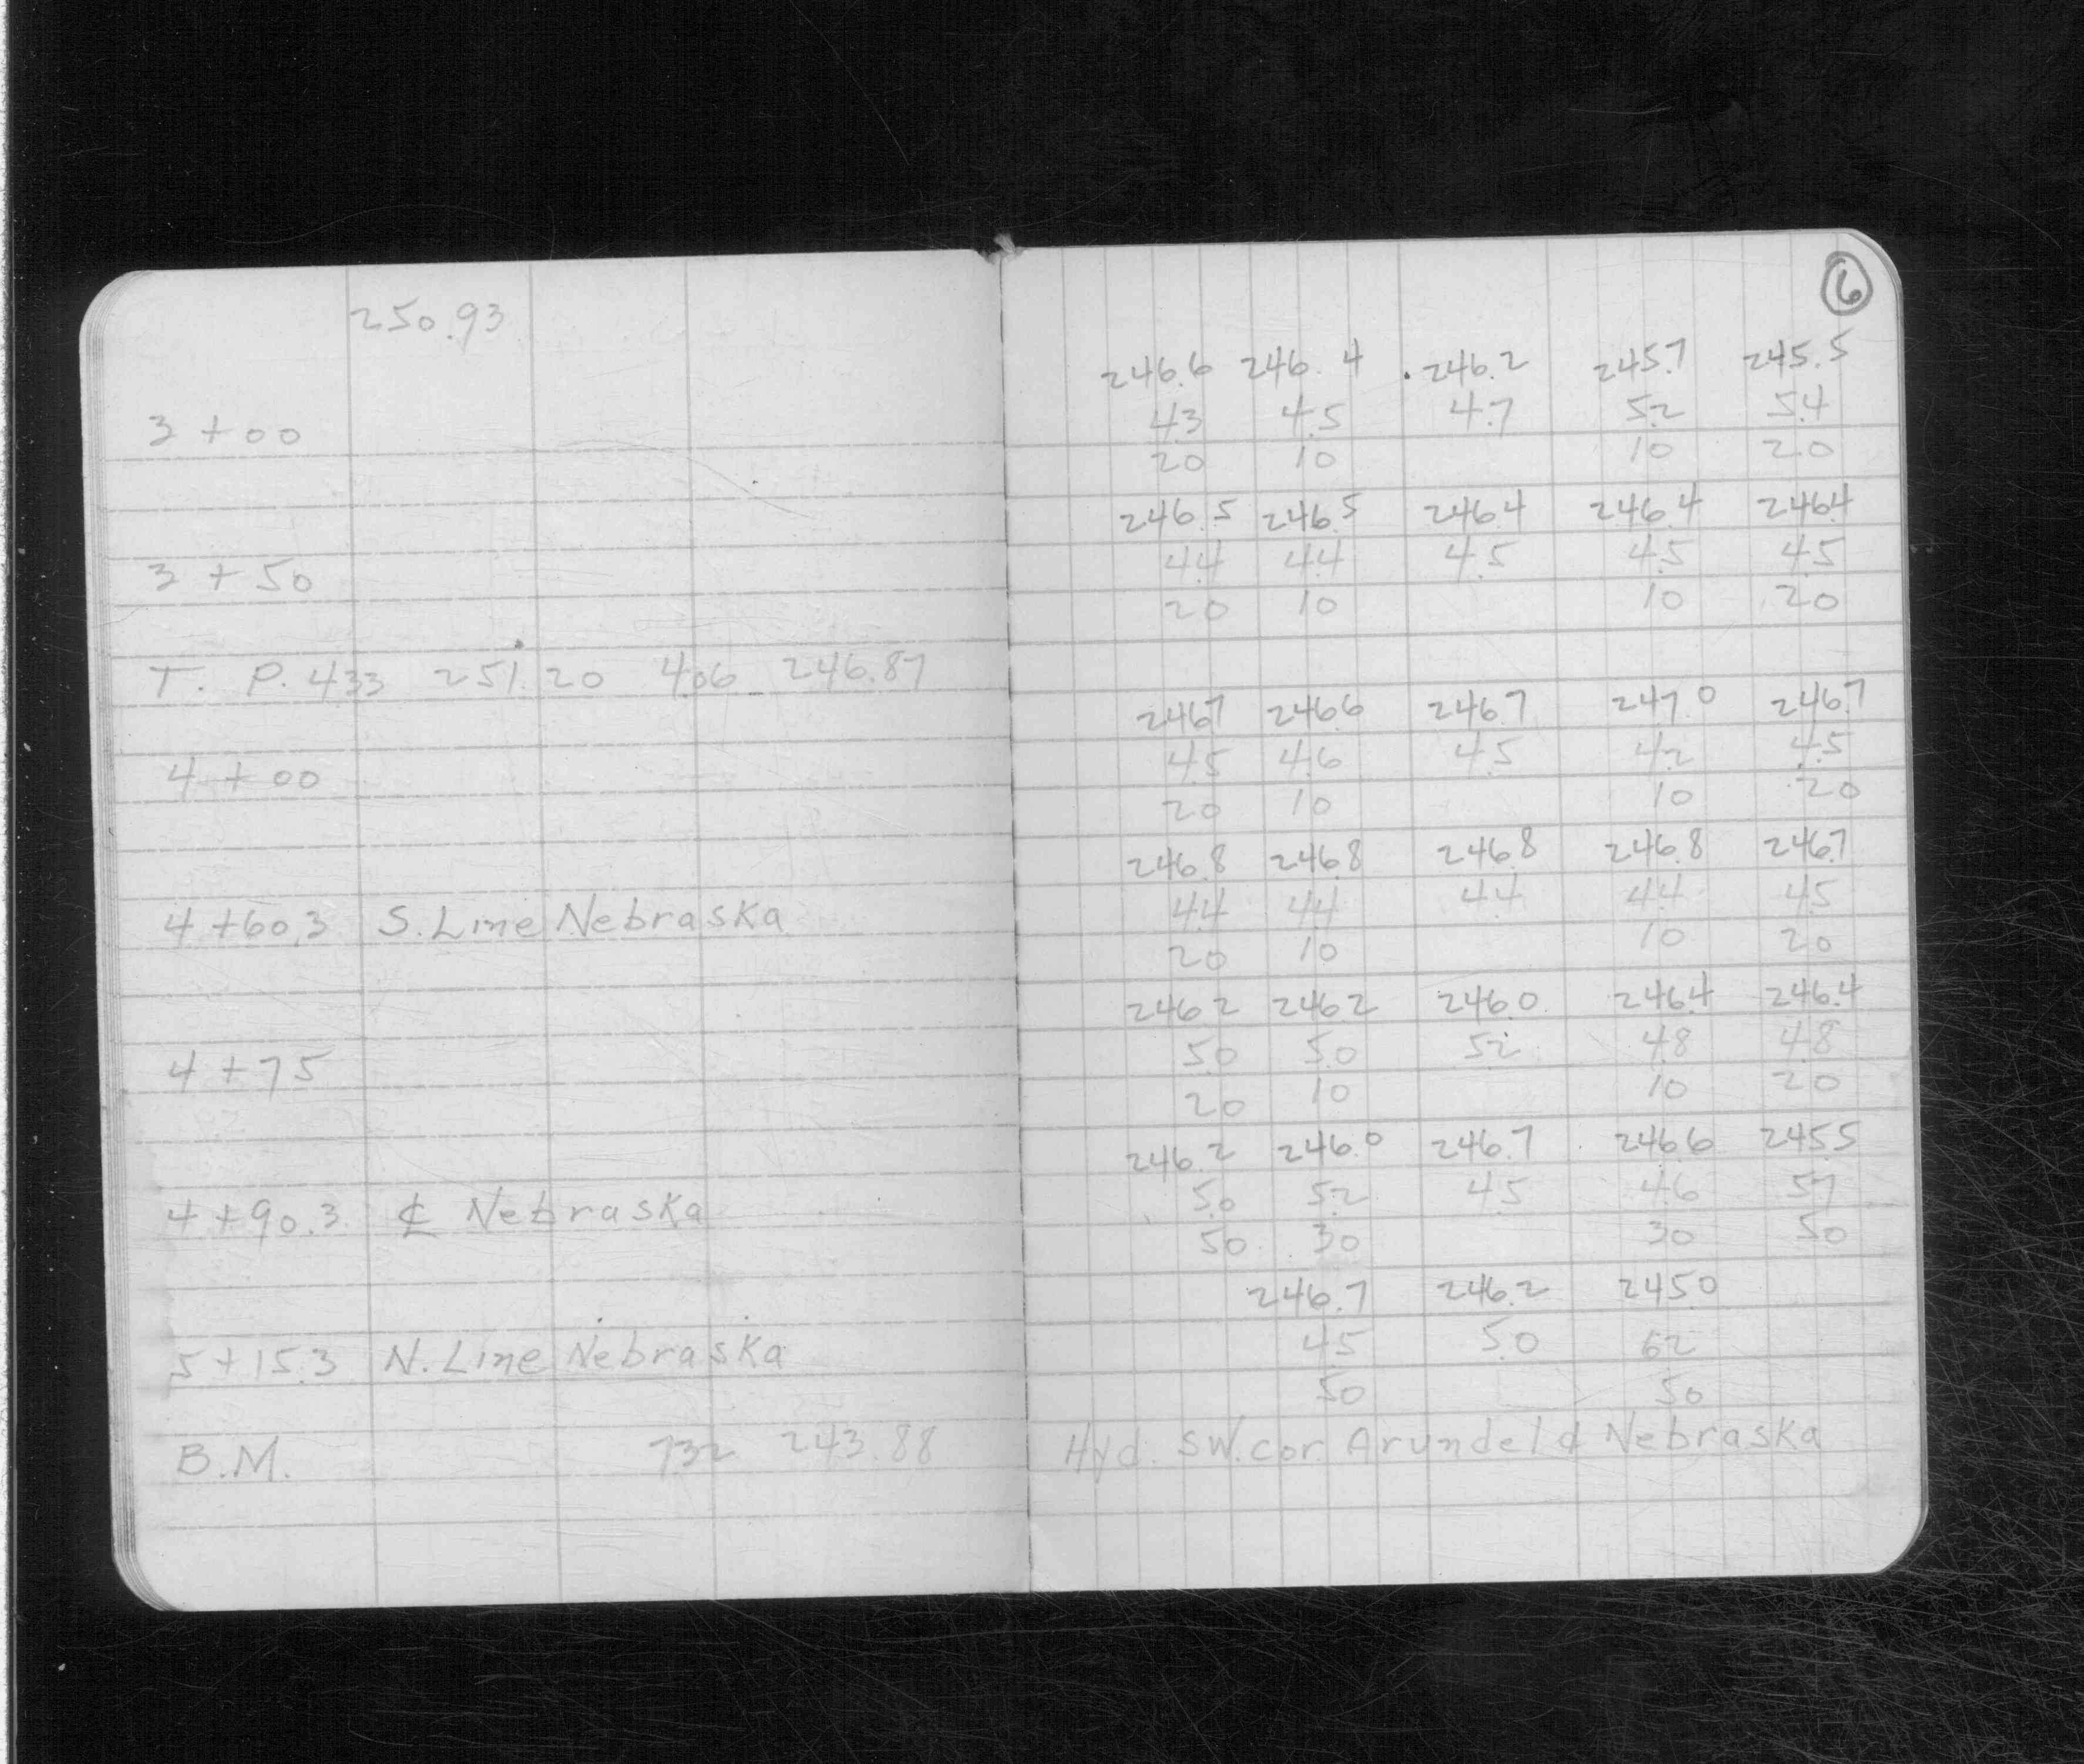 250.93
6
246.6 246.4 246.2 245.7 245.5
3+00 4.3 4.5 4.7 5.2 5.4
20 10 10 20
246.5 246.5 246.4 246.4 246.4
3+50 4.4 4.4 4.5 4.5 4.5
20 10 10 20
T. P. 4.33 251.20 4.06 246.87
246.7 246.6 246.7 247.0 246.7
4+00 4.5 4.6 4.5 4.2 4.5
20 10 10 20
246.8 246.8 246.8 246.8 246.7
4+60.3 S. Line Nebraska 4.4 4.4 4.4 4.4 4.5
20 10 10 20
246.2 246.2 246.0 246.4 246.4
4+75 5.0 5.0 5.2 4.8 4.8
20 10 10 20
246.2 246.0 246.7 246.6 245.5
4+90.3 ⅊ Nebraska 5.0 5.2 4.5 4.6 5.7
50 30 30 50
246.7 246.2 245.0
5+15.3 N. Line Nebraska 4.5 5.0 6.2
50 50
B.M. 7.32 243.88 Hyd. SW. cor. Arundel & Nebraska